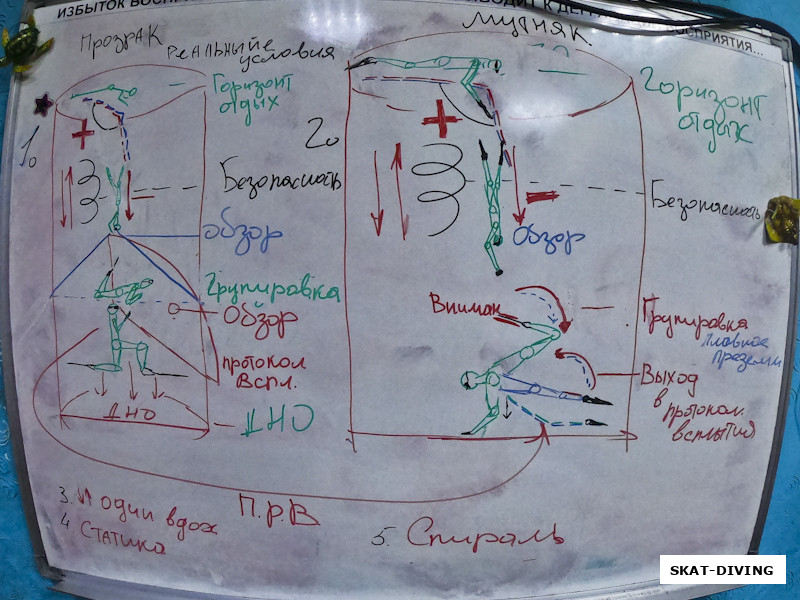 ИЗБЫТОК ВОСПР
ВОДИТ К ДЕ
ВОСПРИЯТИЯ...
ПРОЗРАК
РЕАЛЬНЫЙЕ
УСЛОВИЯ
МУТНЯК
1.
Горизонт
отдых
+
Безопасность
обзор
Группировка
Обзор
ПРОТОКОЛ
ВСПЛ.
ДНО
ДНО
2.
Горизонт
отдых
+
Безопасность
обзор
Вниман
Групировка
плавное
Выход
в
протокол
всплытия
3. И один вдох
4. СТАТИКА
П.Р.В
5. Спираль
SKAT-DIVING